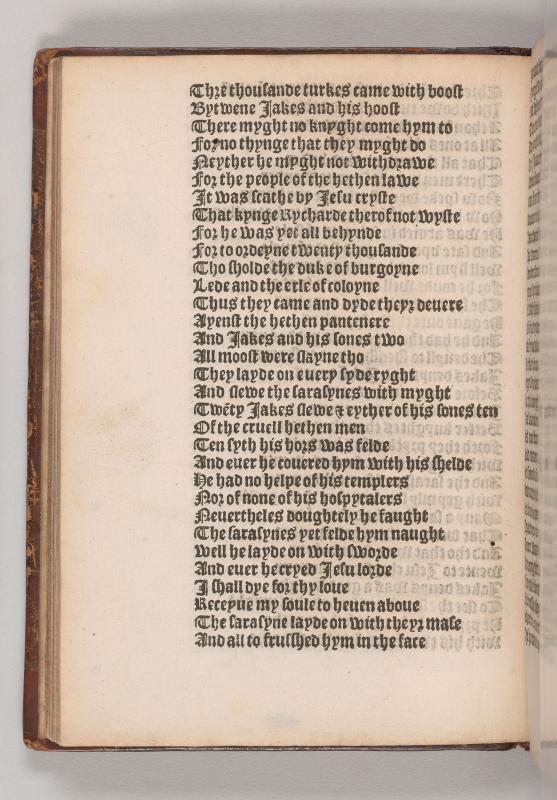 Thre thousande turkes came with boost
Bytwene Jakes and his hoost
There myght no knyght come hym to
For no thynge that they myght do
Neyther he myght not withdrawe
For the people of the hethen lawe
It was scathe by Jesu cryste
That kynge Rycharde therof not wyste
For he was yet all behynde
For to ordeyne twenty thousande
Tho sholde the duke of burgoyne
Lede and the erle of coloyne
Thus they came and dyde theyr devere
Ayenst the hethen pantenere
And Jakes and his sones two
All moost were slayne tho
They layde on euery syde ryght
And slewe the sarasynes with myght
Twēty Jakes slewe & eyther of his sones ten
Of the cruell hethen men
Ten syth his hors was felde
And euer he couered hym with his shelde
He had no helpe of his templers
Nor of none of his hospytalers
Neuertheles doughtely he faught
The sarasynes yet felde hym naught
Well he layde on with sworde
And euer he cryed Jesu lorde
I shall dye for thy loue
Receyue my soule to heuen aboue
The sarasyne layde on with theyr mase
And all to frusshed hym in the face